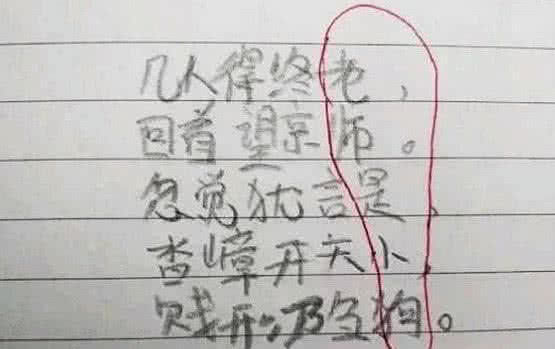 几人得终老，
回首望京师。
忽觉犹言是，
杳嶂开天小，
贱开乃勾狗。